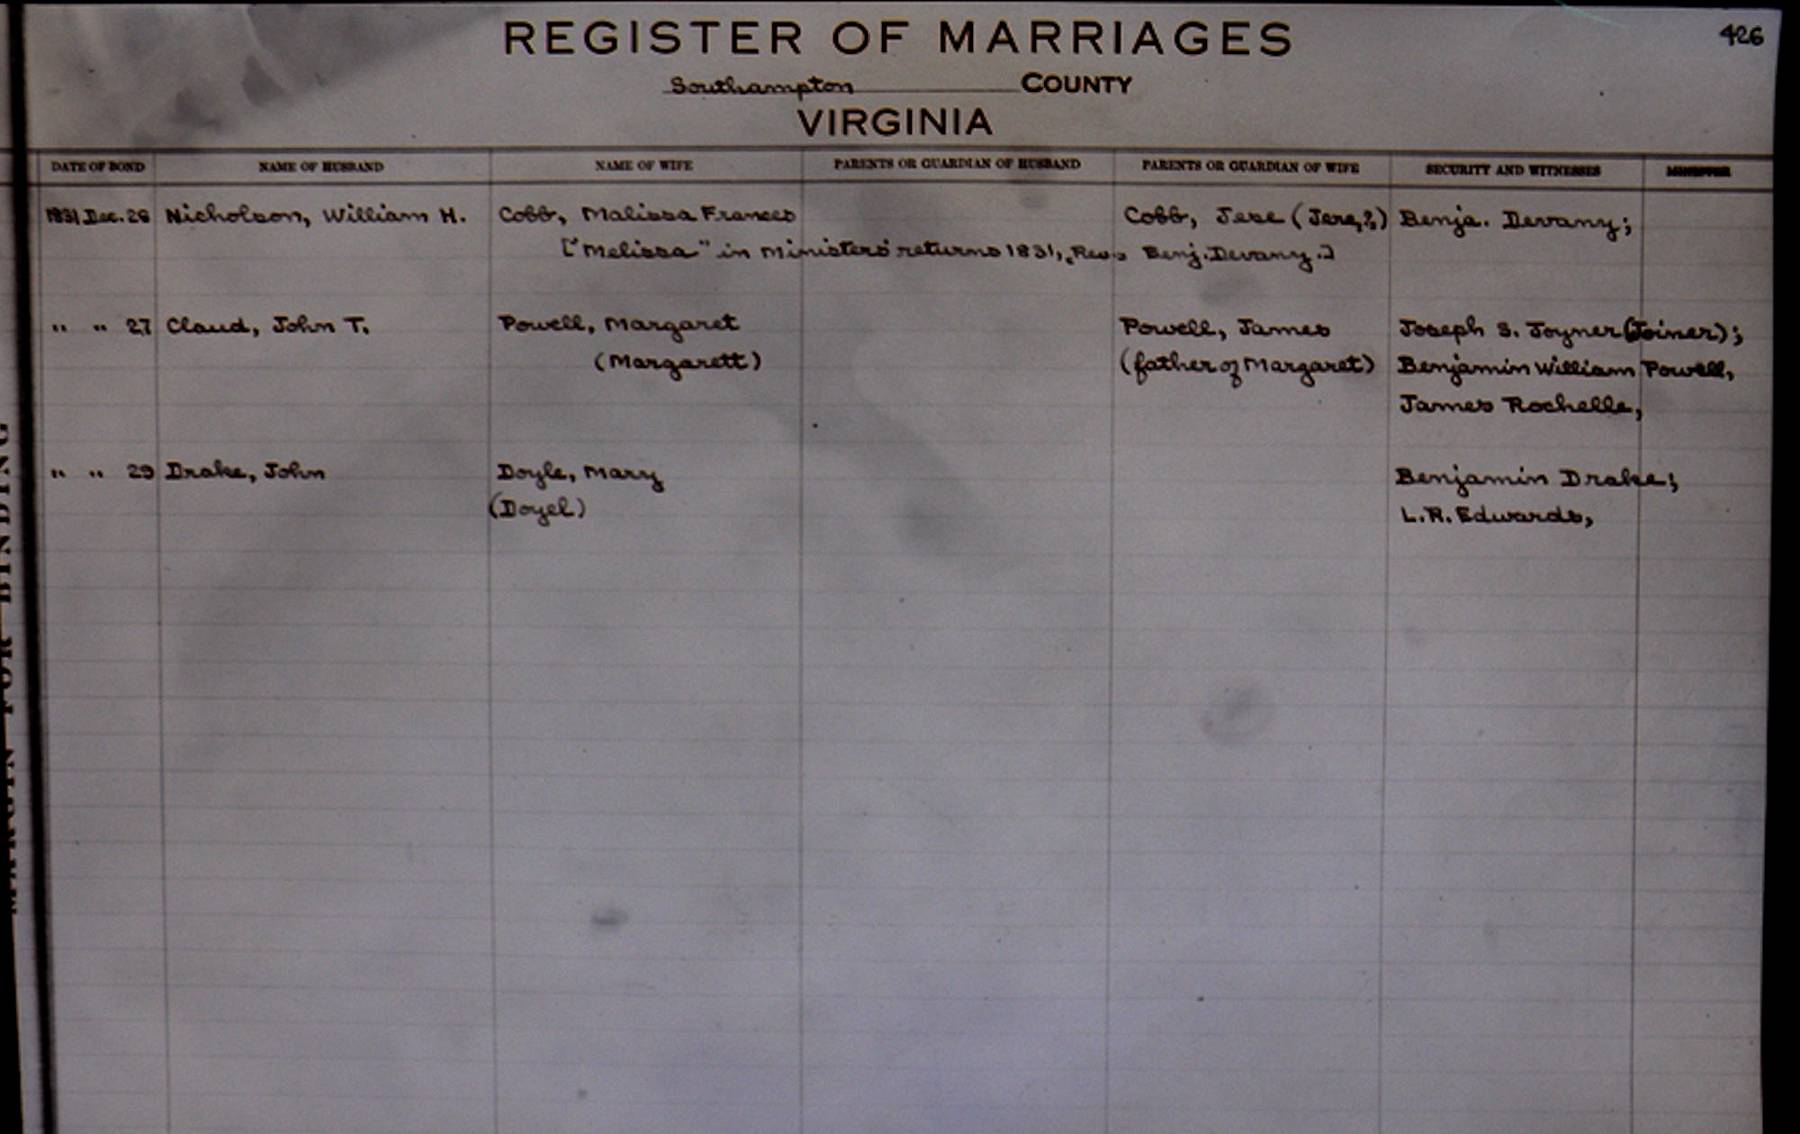 REGISTER OF MARRIAGES
426
Southampton COUNTY
VIRGINIA
DATE OF BOND NAME OF HUSBAND NAME OF WIFE PARENTS OR GUARDIAN OF HUSBAND PARENTS OR GUARDIAN OF WIFE SECURITY AND WITNESSES MINISTER
1831 Dec. 26 Nicholson, William H. Cobb, Malissa Frances Cobb, Jese (Jere,?) Benja. Devany;
["Melissa" in Ministers' returns 1831, Rev. Benj. Devany.]
" " 27 Claud, John T. Powell, Margaret Powell, James Joseph S. Joyner (Joiner);
(Margarett) (father of Margaret) Benjamin William Powell,
James Rochelle,
" " 29 Drake, John Doyle, Mary Benjamin Drake;
(Doyel) L.R. Edwards,
MARGIN FOR BINDING